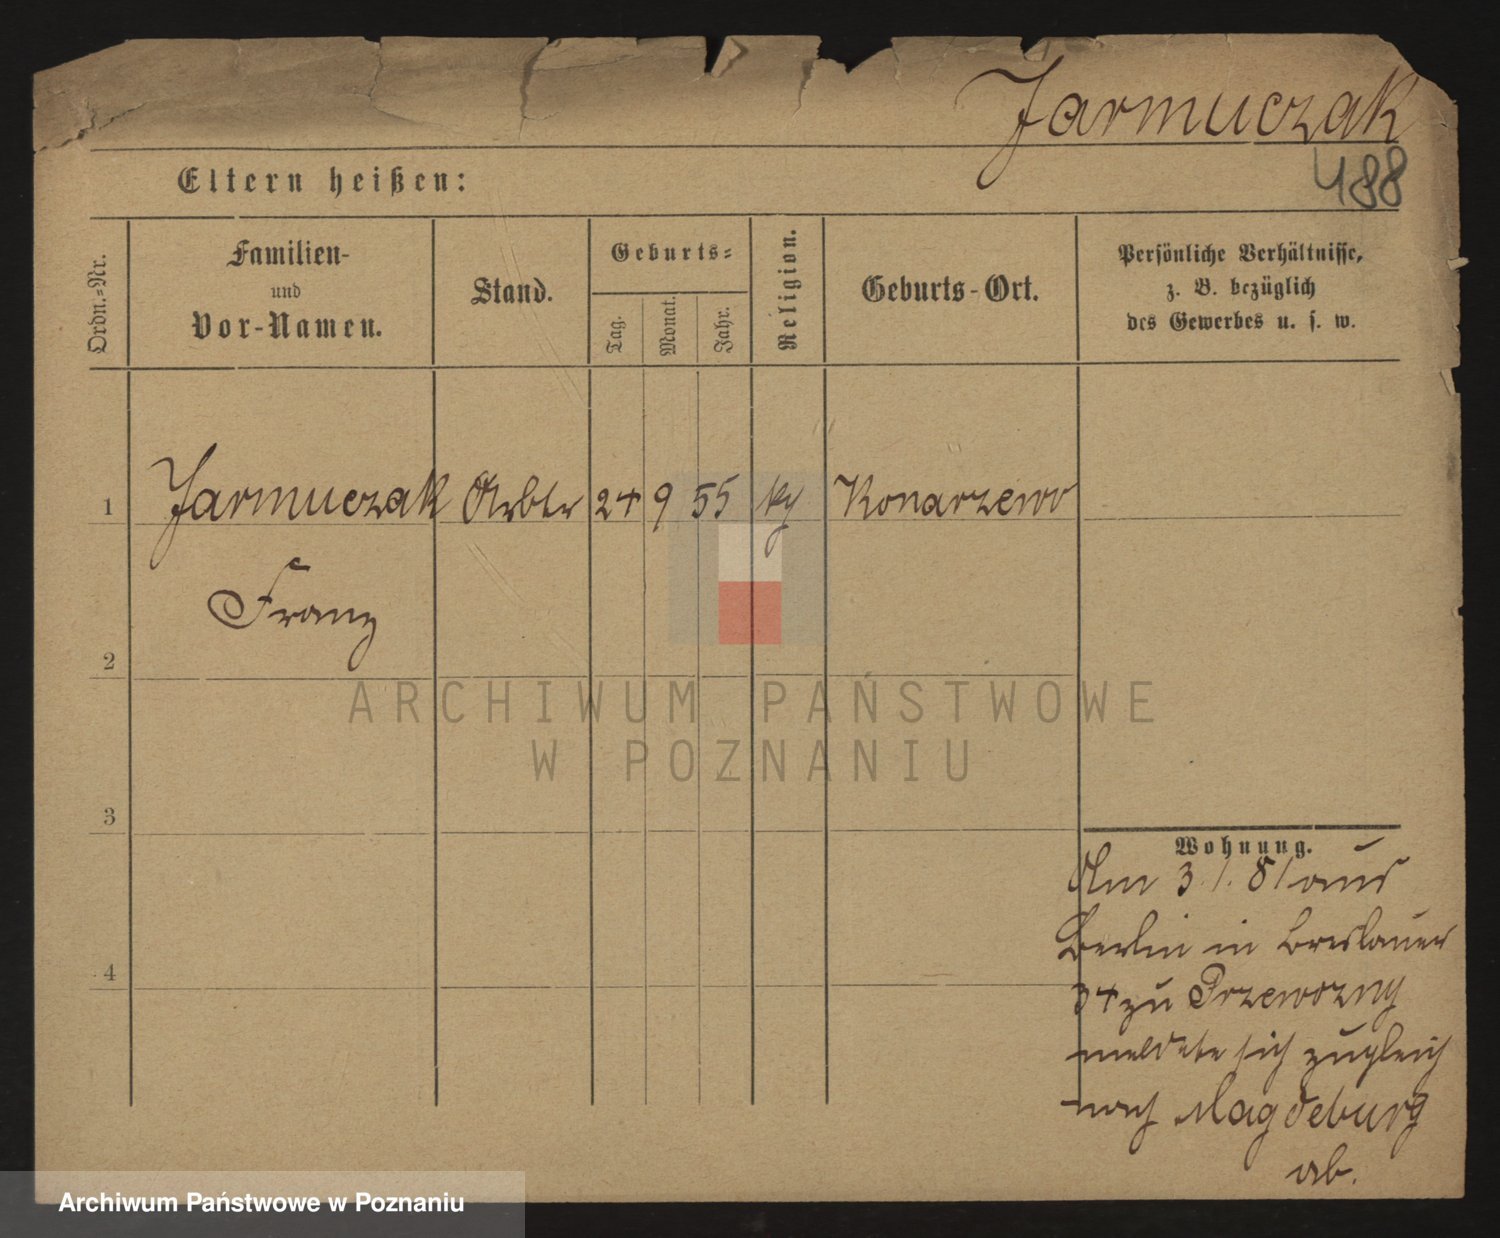 Jarmuczak
488
Eltern heißen:
Ordn.-Nr.
Familien-
und
Vor-Namen.
Stand.
Geburts-
Tag.
Monat.
Jahr.
Religion.
Geburts-Ort.
Persönliche Verhältnisse,
z. B. bezüglich
des Gewerbes u. s. w.
1 Jarmuczak Arbtr 24 9 55 kz Konarzewo
Franz
2
3
4
Wohnung.
Am 3./. 81 aus
Berlin in Breslauer
34 zu Przewozny
meldete sich zugleich
nach Magdeburg
ab.
ARCHIWUM PAŃSTWOWE
W POZNANIU
Archiwum Państwowe w Poznaniu